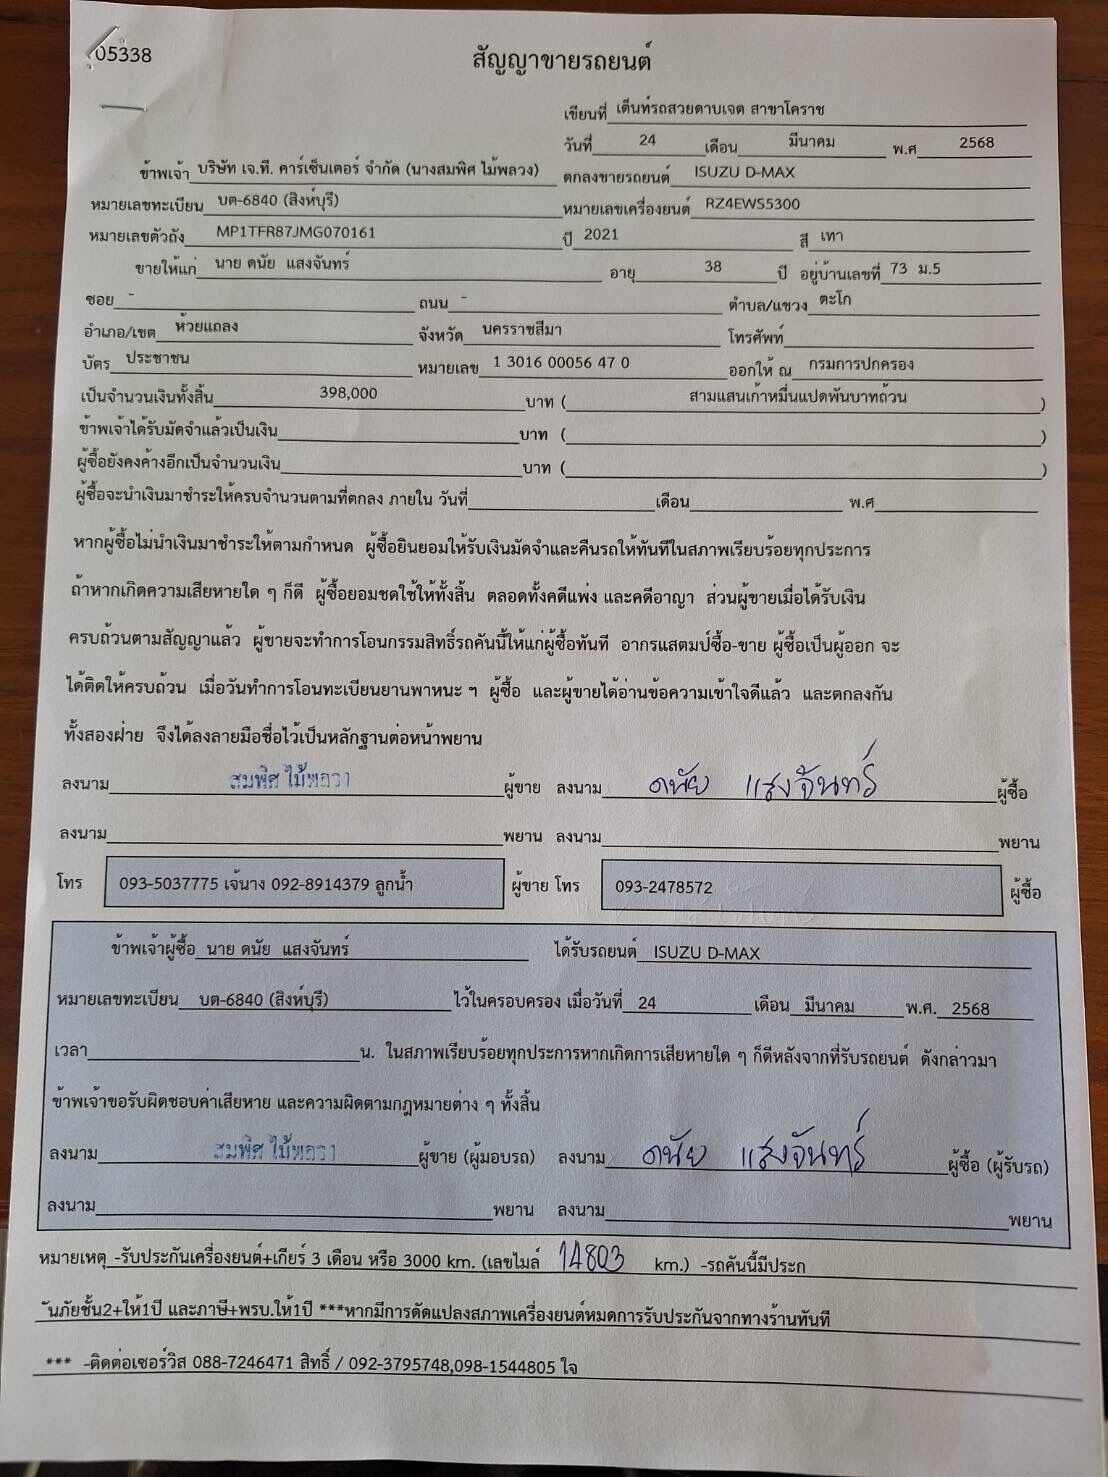 05338
สัญญาขายรถยนต์
เขียนที่ เต็นท์รถสวยดาบเจต สาขาโคราช
วันที่ 24 เดือน มีนาคม พ.ศ 2568
ข้าพเจ้า บริษัท เจ.ที. คาร์เซ็นเตอร์ จำกัด (นางสมพิศ ไม้พลวง) ตกลงขายรถยนต์ ISUZU D-MAX
หมายเลขทะเบียน บต-6840 (สิงห์บุรี) หมายเลขเครื่องยนต์ RZ4EWS5300
หมายเลขตัวถัง MP1TFR87JMG070161 ปี 2021 สี เทา
ขายให้แก่ นาย ดนัย แสงจันทร์ อายุ 38 ปี อยู่บ้านเลขที่ 73 ม.5
ซอย - ถนน - ตำบล/แขวง ตะโก
อำเภอ/เขต ห้วยแถลง จังหวัด นครราชสีมา โทรศัพท์
บัตร ประชาชน หมายเลข 1 3016 00056 47 0 ออกให้ ณ กรมการปกครอง
เป็นจำนวนเงินทั้งสิ้น 398,000 บาท ( สามแสนเก้าหมื่นแปดพันบาทถ้วน )
ข้าพเจ้าได้รับมัดจำแล้วเป็นเงิน บาท ( )
ผู้ซื้อยังคงค้างอีกเป็นจำนวนเงิน บาท ( )
ผู้ซื้อจะนำเงินมาชำระให้ครบจำนวนตามที่ตกลง ภายใน วันที่ เดือน พ.ศ
หากผู้ซื้อไม่นำเงินมาชำระให้ตามกำหนด ผู้ซื้อยินยอมให้รับเงินมัดจำและคืนรถให้ทันทีในสภาพเรียบร้อยทุกประการ
ถ้าหากเกิดความเสียหายใด ๆ ก็ดี ผู้ซื้อยอมชดใช้ให้ทั้งสิ้น ตลอดทั้งคดีแพ่ง และคดีอาญา ส่วนผู้ขายเมื่อได้รับเงิน
ครบถ้วนตามสัญญาแล้ว ผู้ขายจะทำการโอนกรรมสิทธิ์รถคันนี้ให้แก่ผู้ซื้อทันที อากรแสตมป์ซื้อ-ขาย ผู้ซื้อเป็นผู้ออก จะ
ได้ติดให้ครบถ้วน เมื่อวันทำการโอนทะเบียนยานพาหนะ ฯ ผู้ซื้อ และผู้ขายได้อ่านข้อความเข้าใจดีแล้ว และตกลงกัน
ทั้งสองฝ่าย จึงได้ลงลายมือชื่อไว้เป็นหลักฐานต่อหน้าพยาน
ลงนาม สมพิศ ไม้พลวง ผู้ขาย ลงนาม ดนัย แสงจันทร์ ผู้ซื้อ
ลงนาม พยาน ลงนาม พยาน
โทร 093-5037775 เจ้นาง 092-8914379 ลูกน้ำ ผู้ขาย โทร 093-2478572 ผู้ซื้อ
ข้าพเจ้าผู้ซื้อ นาย ดนัย แสงจันทร์ ได้รับรถยนต์ ISUZU D-MAX
หมายเลขทะเบียน บต-6840 (สิงห์บุรี) ไว้ในครอบครอง เมื่อวันที่ 24 เดือน มีนาคม พ.ศ. 2568
เวลา น. ในสภาพเรียบร้อยทุกประการหากเกิดการเสียหายใด ๆ ก็ดีหลังจากที่รับรถยนต์ ดังกล่าวมา
ข้าพเจ้าขอรับผิดชอบค่าเสียหาย และความผิดตามกฎหมายต่าง ๆ ทั้งสิ้น
ลงนาม สมพิศ ไม้พลวง ผู้ขาย (ผู้มอบรถ) ลงนาม ดนัย แสงจันทร์ ผู้ซื้อ (ผู้รับรถ)
ลงนาม พยาน ลงนาม พยาน
หมายเหตุ -รับประกันเครื่องยนต์+เกียร์ 3 เดือน หรือ 3000 km. (เลขไมล์ 14803 km.) -รถคันนี้มีประก
ันภัยชั้น2+ให้1ปี และภาษี+พรบ.ให้1ปี ***หากมีการดัดแปลงสภาพเครื่องยนต์หมดการรับประกันจากทางร้านทันที
*** -ติดต่อเซอร์วิส 088-7246471 สิทธิ์ / 092-3795748,098-1544805 ใจ